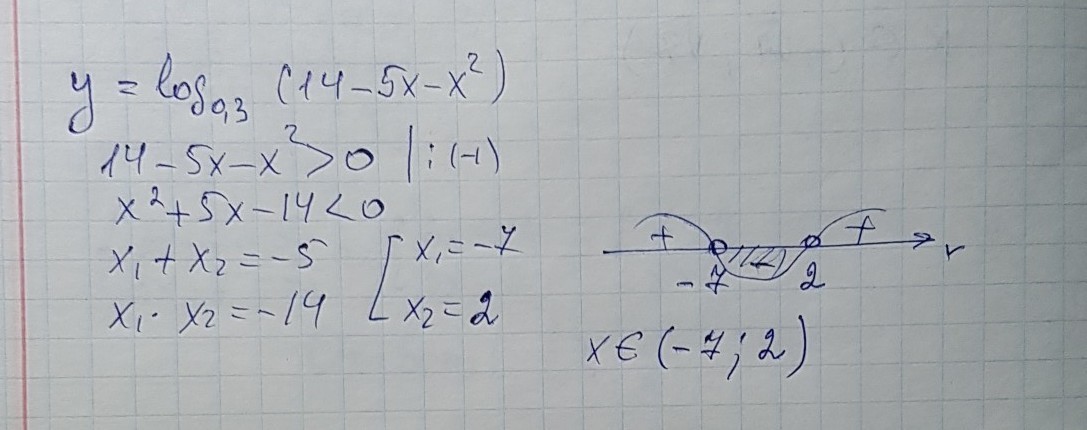 y = log₀,₃ (14-5x-x²)
14-5x-x²>0 | : (-1)
x²+5x-14<0
x₁ + x₂ = -5
x₁ · x₂ = -14
[ x₁ = -7
x₂ = 2
+ - +
-7 2
x ∈ (-7; 2)